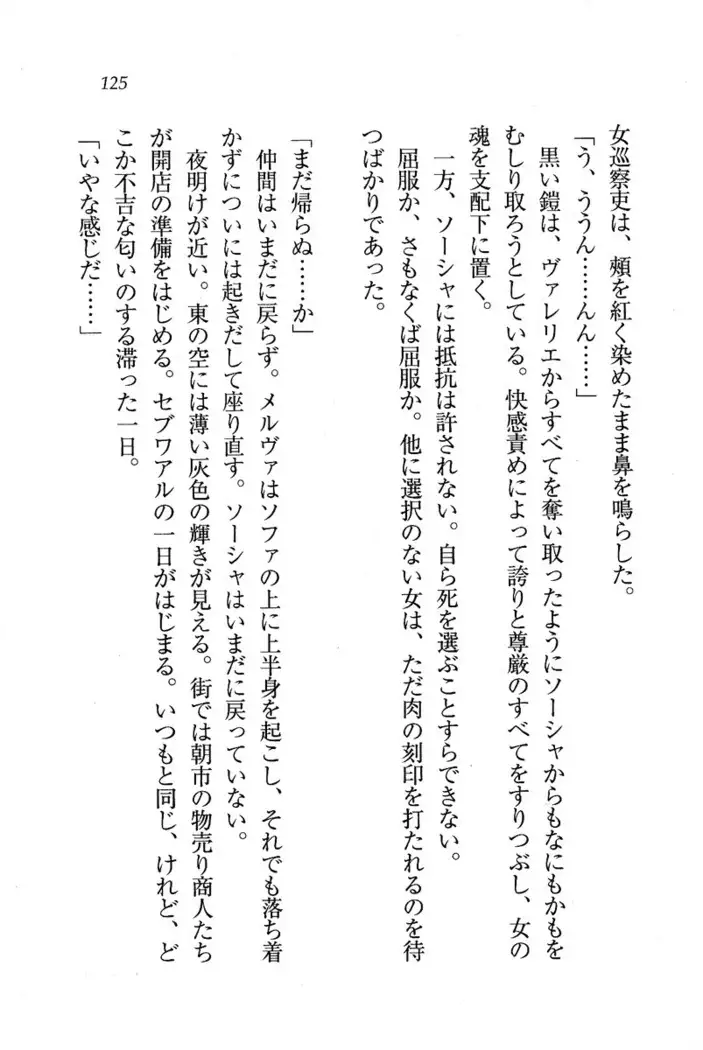 125
女巡察吏は、頰を紅く染めたまま鼻を鳴らした。
「う、ううん……んん……」
黒い鎧は、ヴァレリエからすべてを奪い取ったようにソーシャからもなにもかもを
むしり取ろうとしている。快感責めによって誇りと尊厳のすべてをすりつぶし、女の
魂を支配下に置く。
一方、ソーシャには抵抗は許されない。自ら死を選ぶことすらできない。
屈服か、さもなくば屈服か。他に選択のない女は、ただ肉の刻印を打たれるのを待
つばかりであった。
「まだ帰らぬ……か」
仲間はいまだに戻らず。メルヴァはソファの上に上半身を起こし、それでも落ち着
かずについには起きだして座り直す。ソーシャはいまだに戻っていない。
夜明けが近い。東の空には薄い灰色の輝きが見える。街では朝市の物売り商人たち
が開店の準備をはじめる。セブワアルの一日がはじまる。いつもと同じ、けれど、ど
こか不吉な匂いのする滞った一日。
「いやな感じだ……」